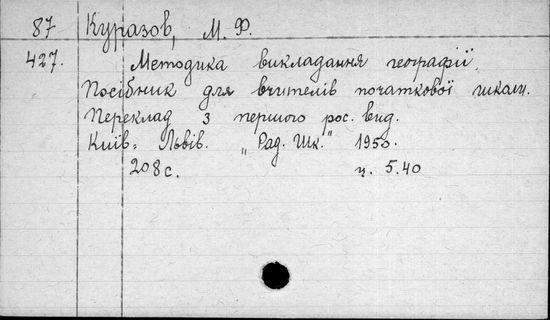 87 Куразов, М. Ф.
427. Методика викладання географії.
Посібник для вчителів початкової школи.
Переклад з першого рос. вид.
Київ= Львів. „Рад. Шк." 1950.
208 с. ц. 5.40